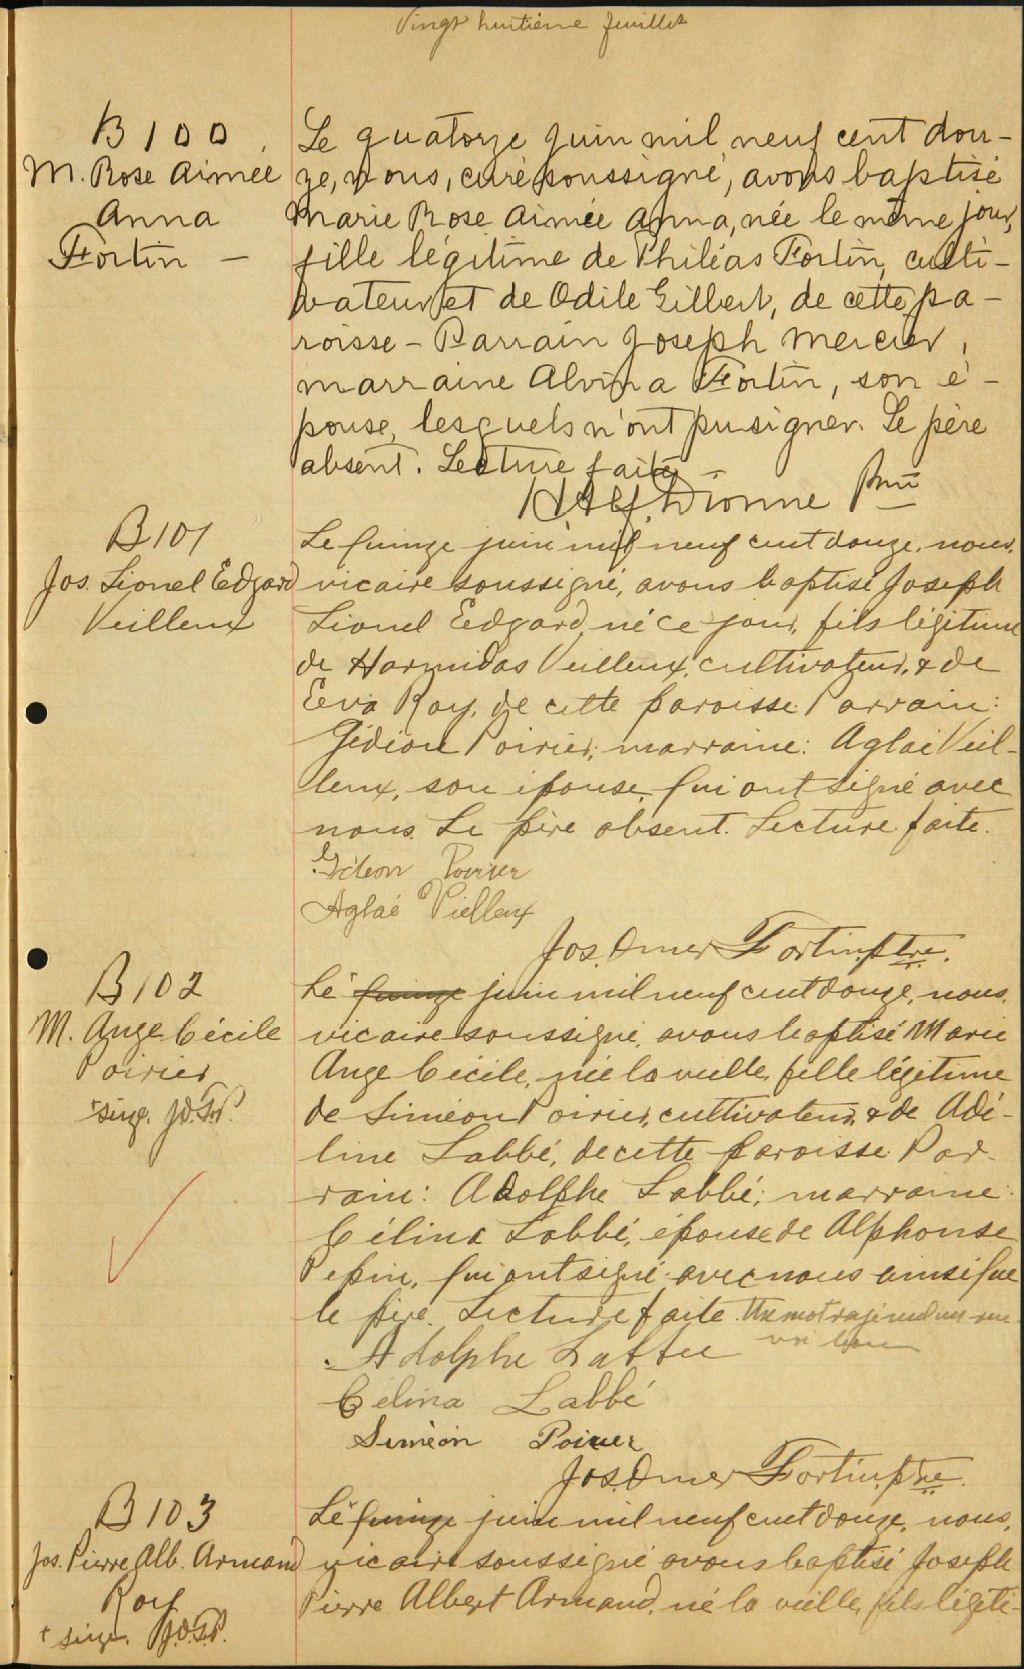 Vingt huitième feuillet
B 100
M. Rose Aimée
Anna
Fortin —
Le quatorze juin mil neuf cent dou-
ze, nous, curé soussigné, avons baptisé
Marie Rose Aimée Anna, née le même jour,
fille légitime de Philéas Fortin, culti-
vateur et de Odile Gilbert, de cette pa-
roisse – Parrain Joseph Mercier,
marraine Alvina Fortin, son é-
pouse, lesquels n'ont pu signer. Le père
absent. Lecture faite –
H. Alf. Dionne Ptre
B 101
Jos. Lionel Edgard
Veilleux
Le quinze juin mil neuf cent douze, nous,
vicaire soussigné, avons baptisé Joseph
Lionel Edgard, né ce jour, fils légitime
de Harmidas Veilleux, cultivateur, & de
Eva Roy, de cette paroisse. Parrain:
Gédéon Poirier; marraine: Aglaé Veil-
leux, son épouse, qui ont signé avec
nous. Le père absent. Lecture faite.
Gédeon Poirier
Aglaé Vielleux
Jos. Omer Fortin, ptre.
B 102
M. Ange Cécile
Poirier
+ seize. J.O.F.P.
Le + quinze juin mil neuf cent douze, nous,
vicaire soussigné, avons baptisé Marie
Ange Cécile, née la veille, fille légitime
de Siméon Poirier, cultivateur, & de Adé-
line Labbé, de cette paroisse. Par-
rain: Adolphe Labbé; marraine:
Célina Labbé, épouse de Alphonse
Pepin, qui ont signé avec nous ainsi que
le père. Lecture faite. Un mot rayé nul un ren-
voi bon
Adolphe Labbee
Célina Labbé
Siméon Poirier
Jos. Omer Fortin, ptre.
B 103
Jos. Pierre Alb. Armand
Roy
+ seize. J.O.F.P.
Le + quinze juin mil neuf cent douze, nous,
vicaire soussigné avons baptisé Joseph
Pierre Albert Armand, né la veille, fils légiti-